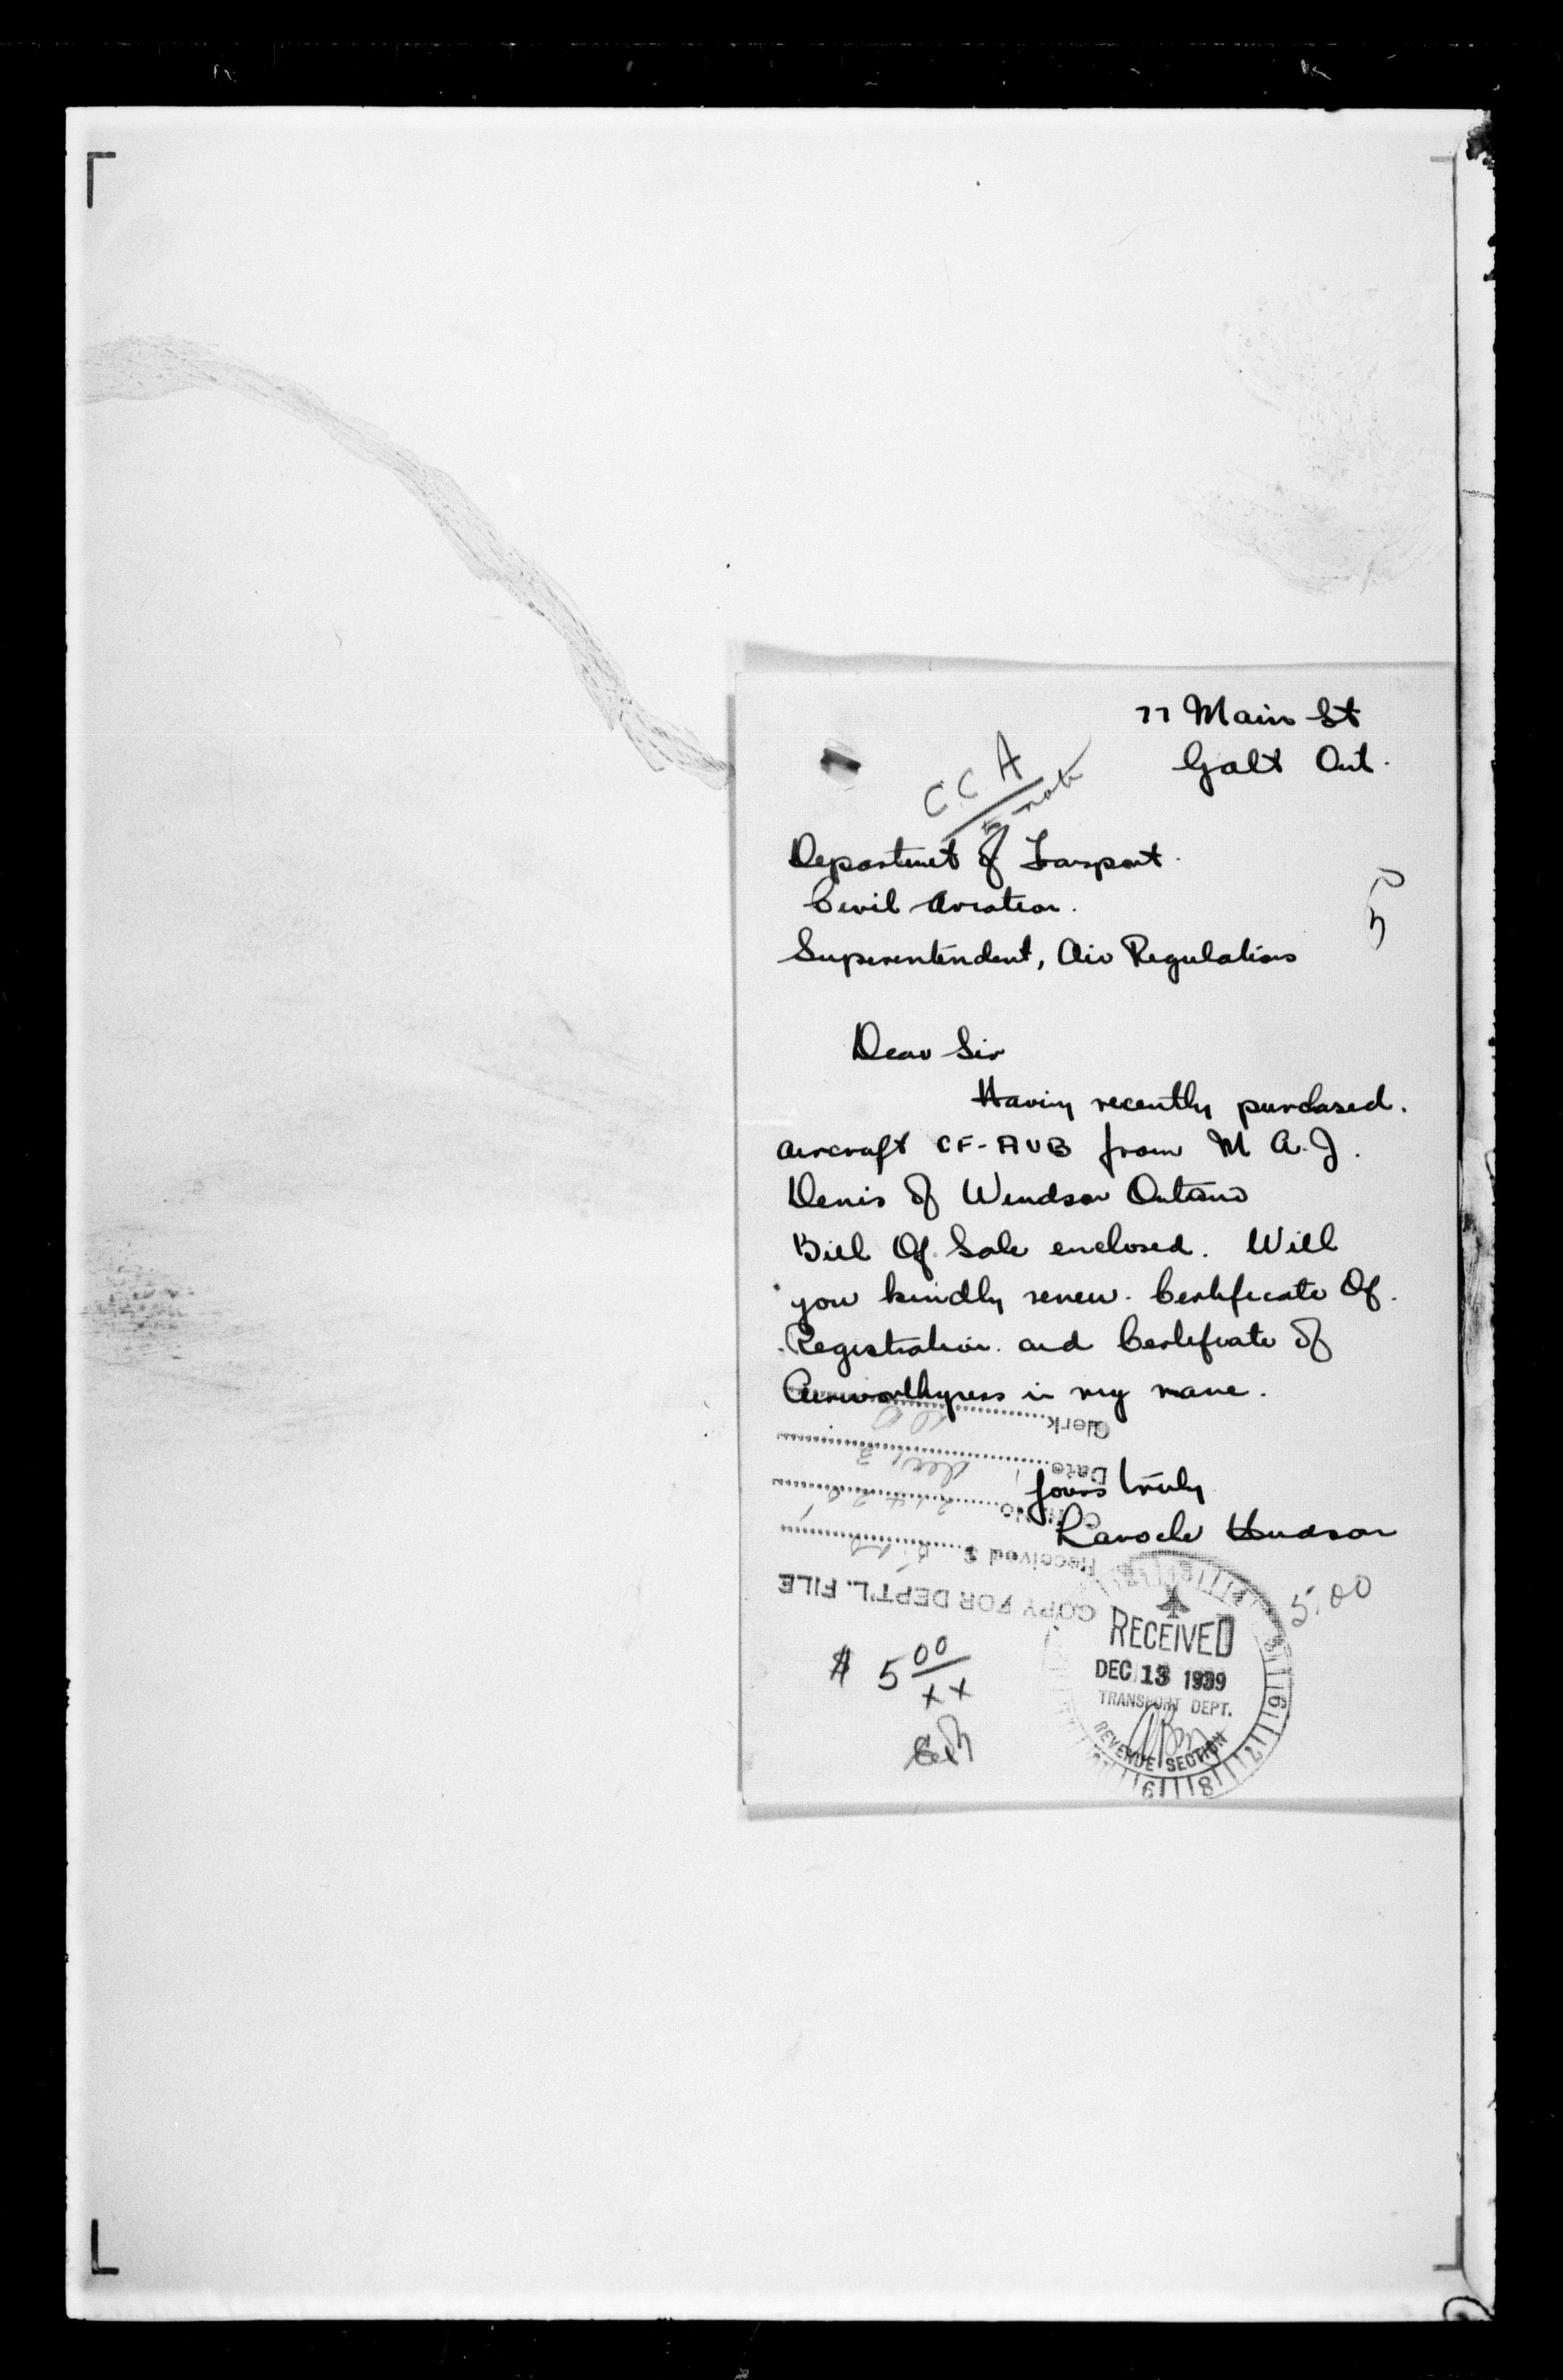 77 Main St
Galt Ont.
C.C.A
to note
Departmet of Transport.
Civil Aviation.
Superentendent, Air Regulations
Dear Sir
Having recently purchased.
aircraft CF-AUB from M A. J.
Denis of Windsor Ontario
Bill Of Sale enclosed. Will
you kindly renew. Certificate Of.
Registration. and Certificate of
Airworthyness in my name.
Yours truly
Hudson
COPY FOR DEPT'L. FILE
Received $
Date
Clerk
5.00
$ 5 00/xx
RECEIVED
DEC 13 1939
TRANSPORT DEPT.
REVENUE SECTION